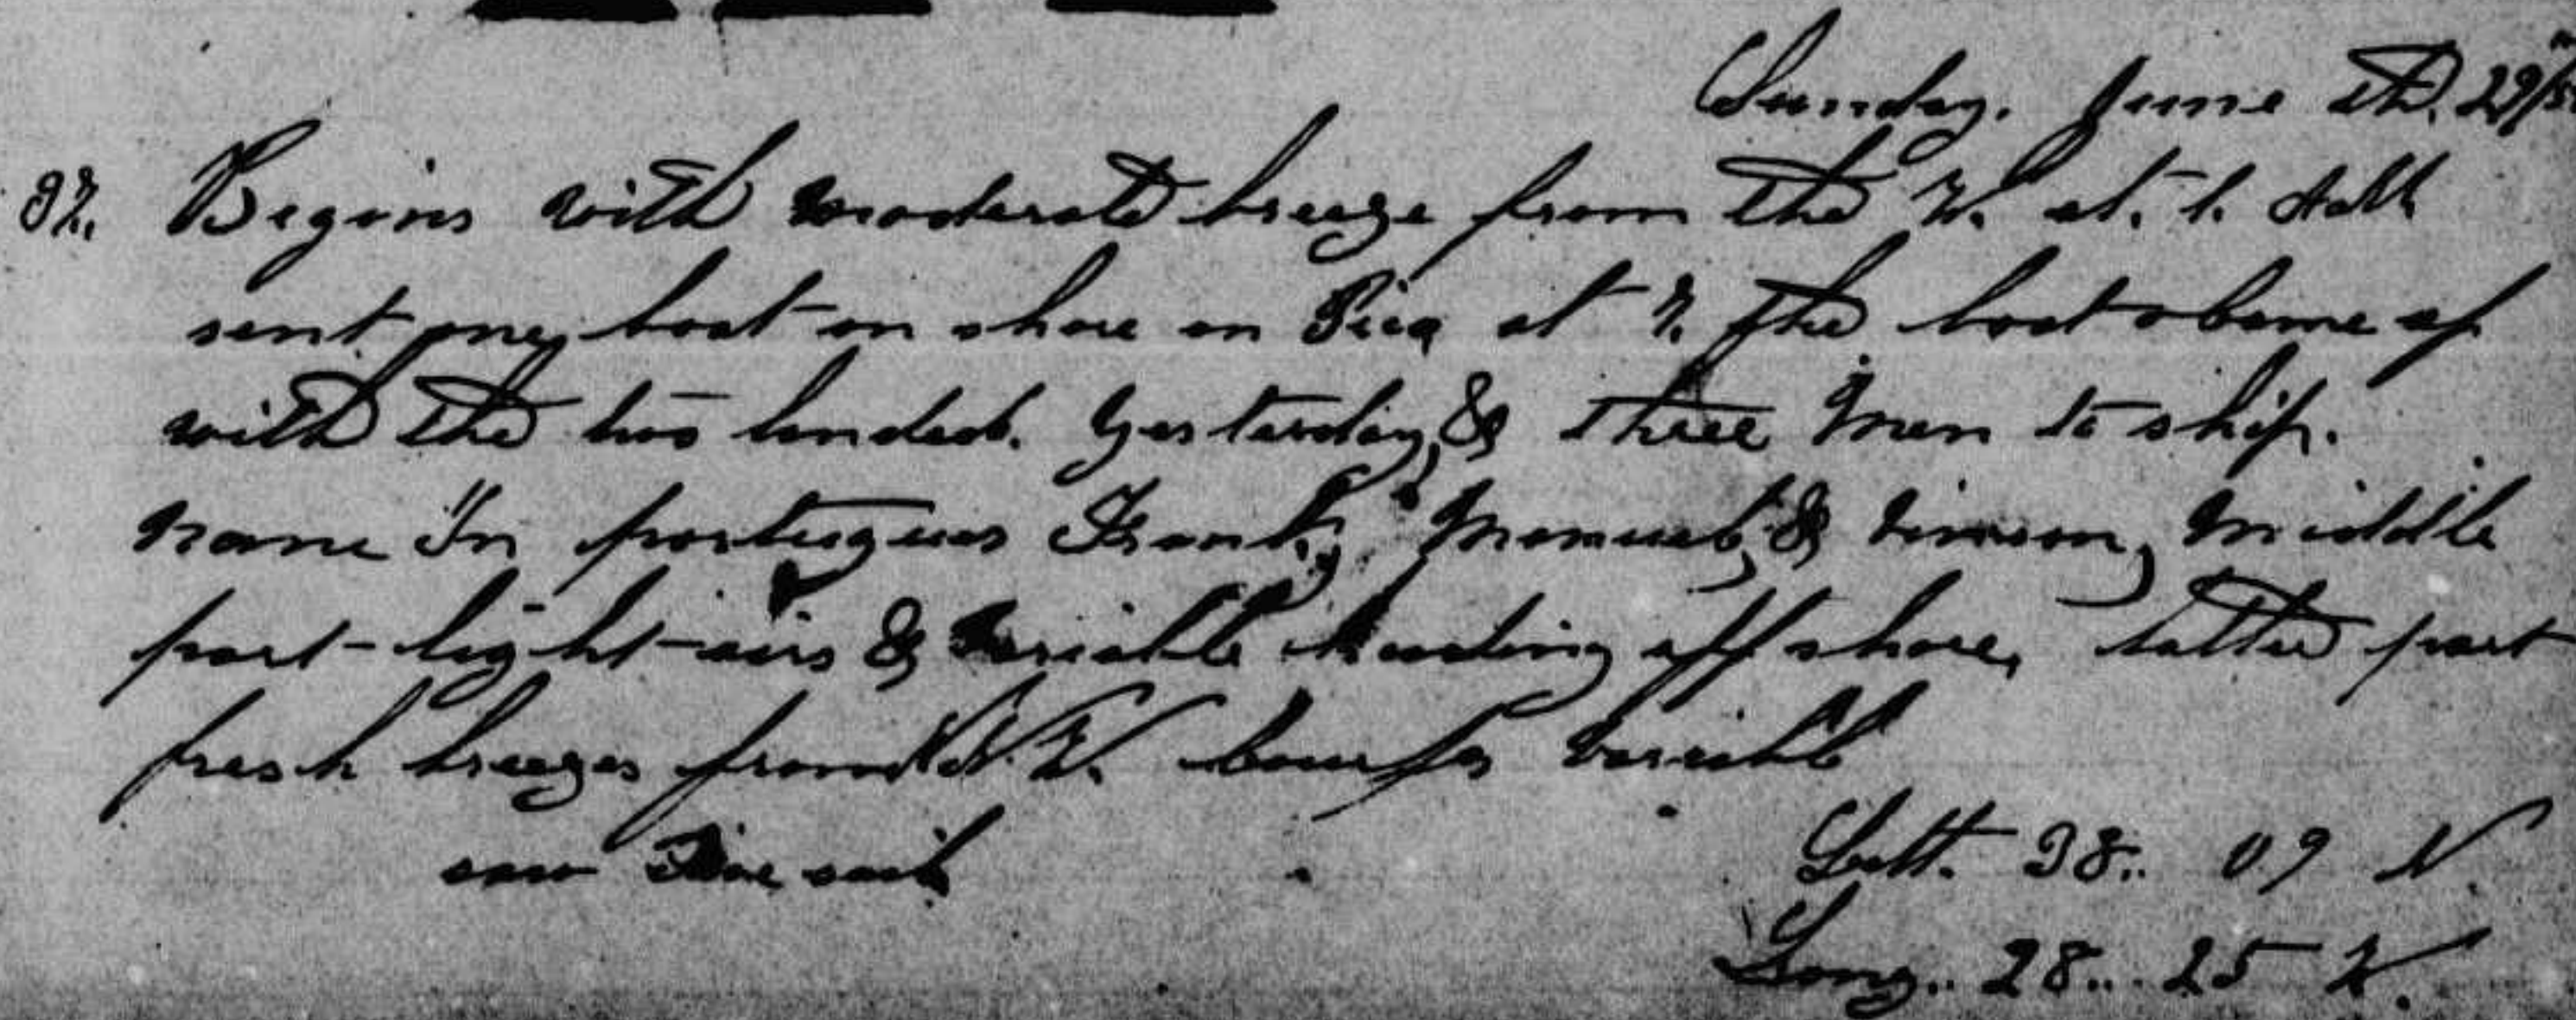 Sunday. June th. 29/
37. Begins with moderate breeze from the W. at. 1.
sent one boat on shore on Pico at 7. the boat came of
with the two landed. yesterday, & three men to ship.
name In portugues Frank, Manuel, & middle
part - light - airs & variable heading off shore, latter part
fresh breezes from W. variable
saw sail
Latt. 38.. 09 N.
Long.. 28... 25 W.